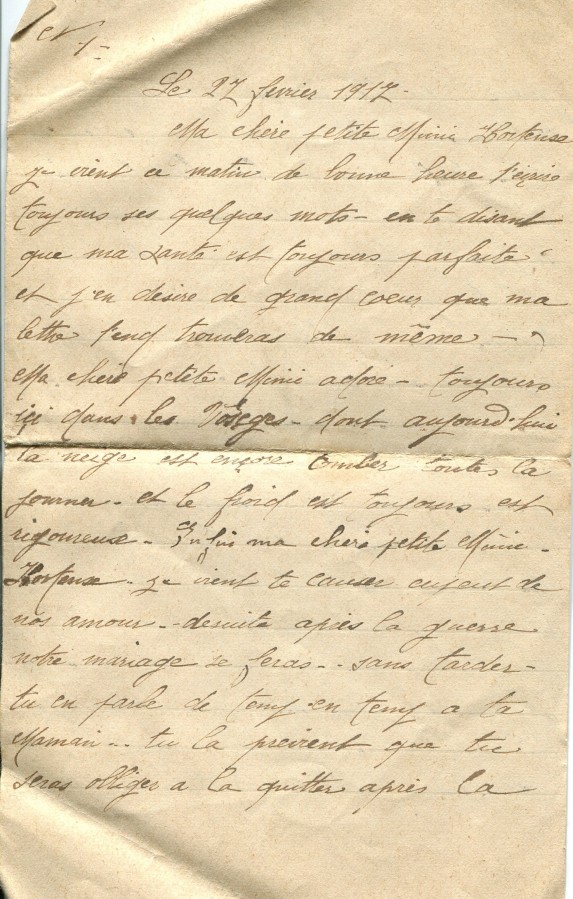 N 1-
Le 27 fevrier 1917-
Ma chère petite Mimi Hortense
je vient ce matin de bonne heure t'ecrire
toujours ses quelques mots - en te disant
que ma santé est toujours parfaite
et j'en désire de grand coeur que ma
lettre t'en trouveras de même -
Ma chère petite Mimi adoré - toujours
içi dans les Vosges - dont aujourd'hui
la neige est encore tomber toutes la
journer - et le froid est toujours est
rigoureuse - Enfin ma chère petite Mimi -
Hortense - je vient te causer de
nos amour - desuite après la guerre
notre mariage se feras - sans tarder -
tu en parle de temp en temp a ta
Maman - tu la previent que tu
seras obliger a la quitter après la